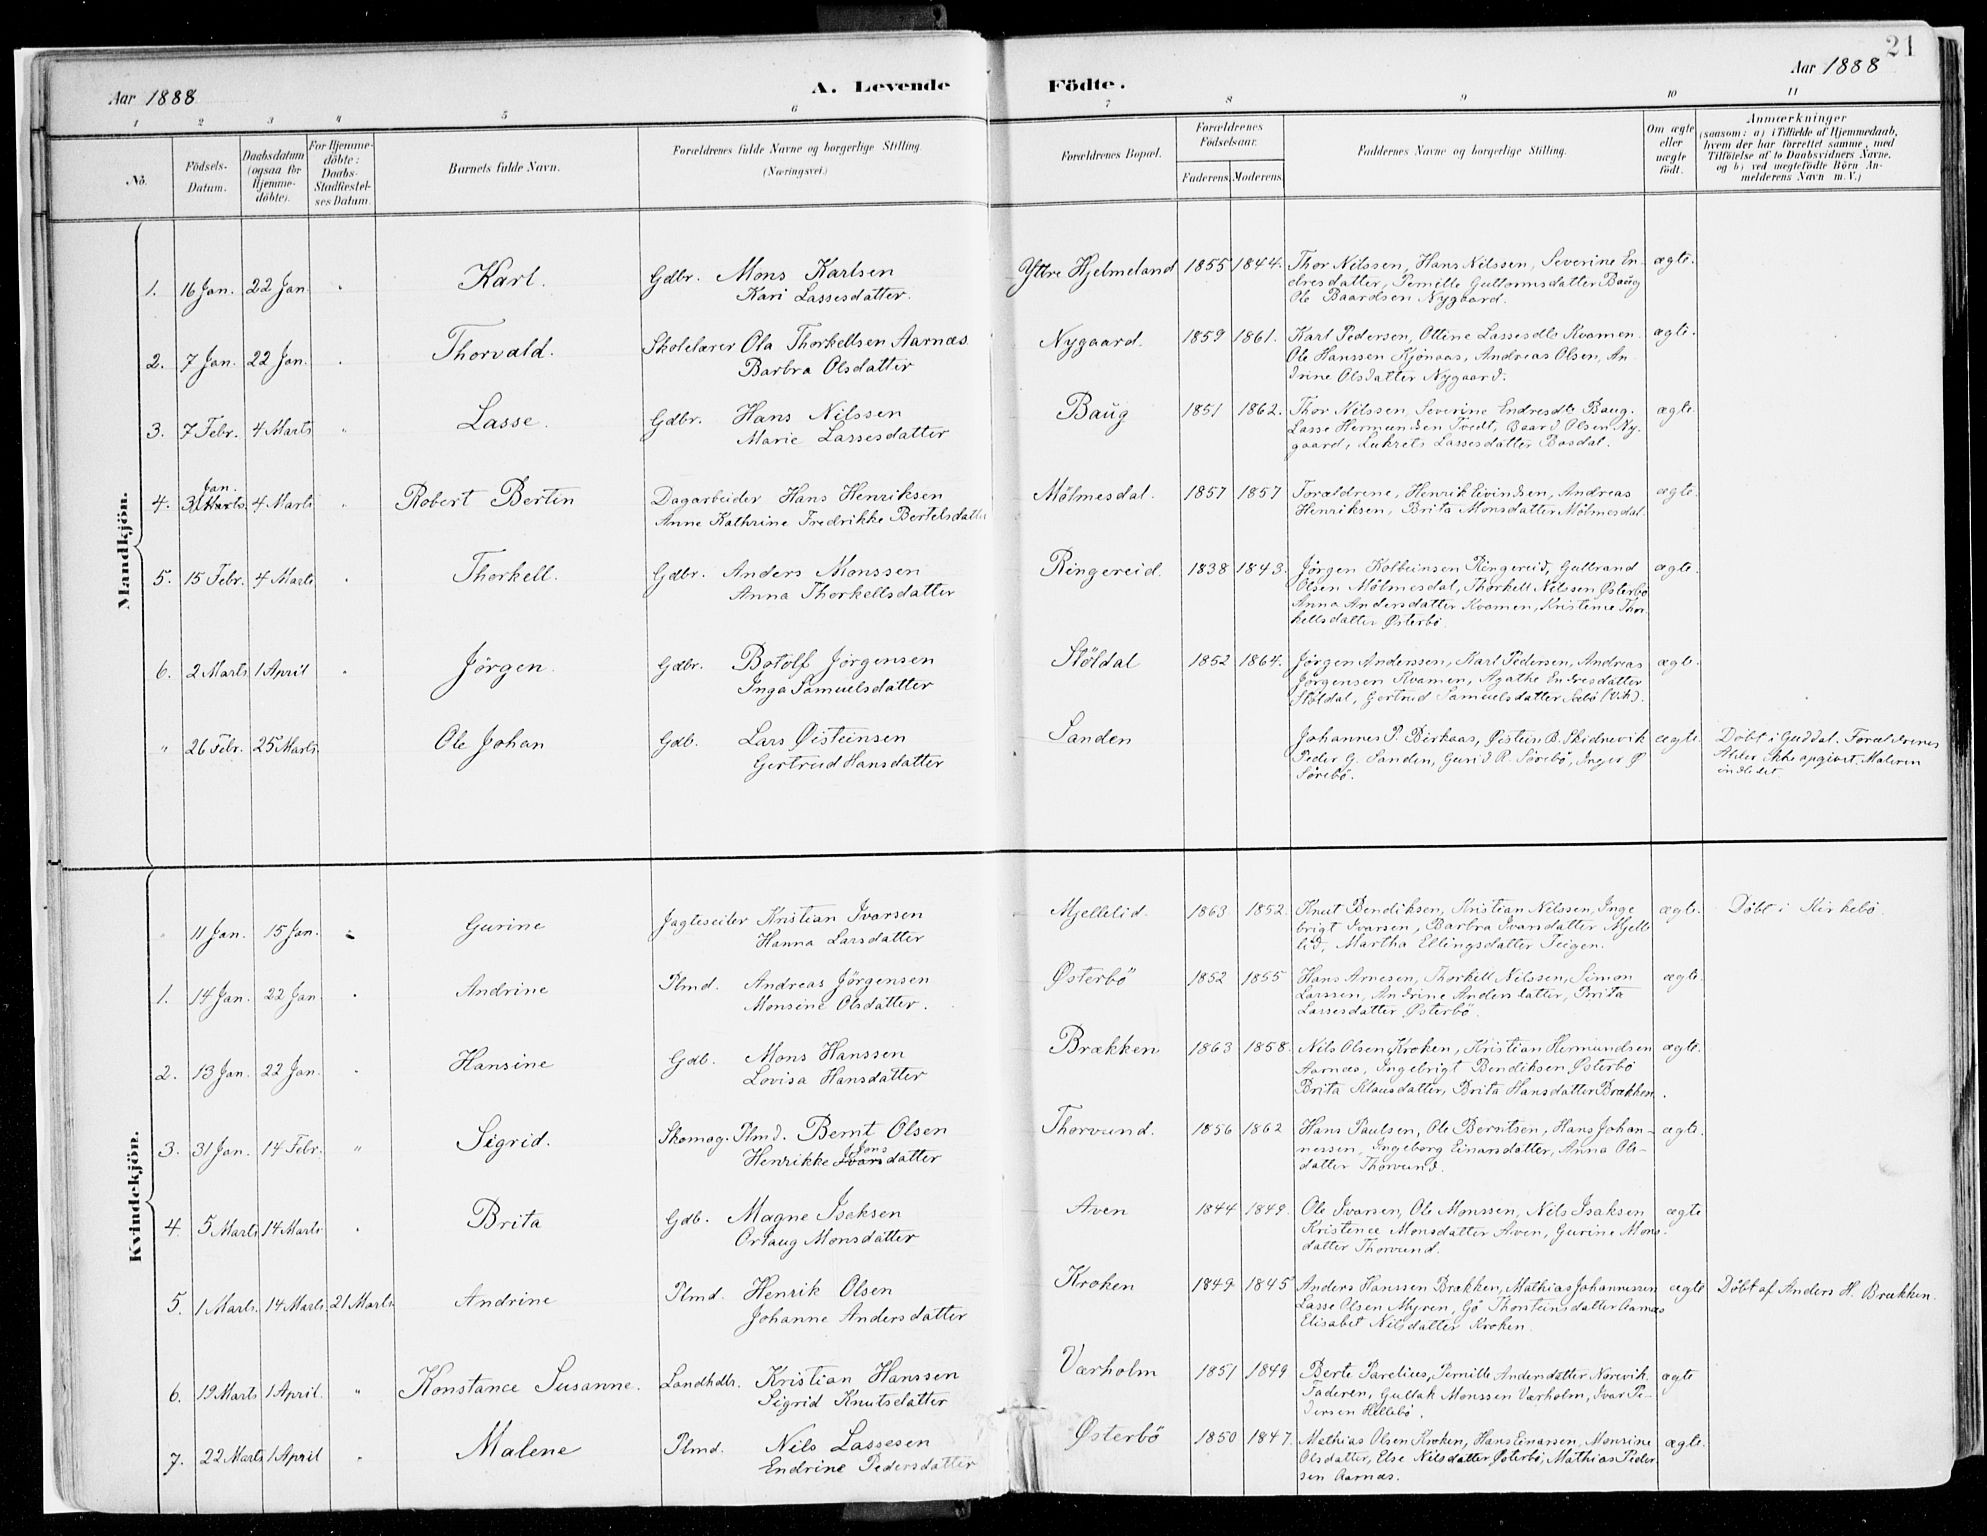 21
Aar 1888 A. Levende Födte. Aar 1888
1 2 3 4 5 6 7 8 9 10 11
No. Födsels-Datum. Daabsdatum (ogsaa for Hjemme-döbte). For Hjemme-döbte: Daabs-Stadfæstel-ses Datum. Barnets fulde Navn. Forældrenes fulde Navne og borgerlige Stilling. (Næringsvei.) Forældrenes Bopæl. Forældrenes Födselsaar. Faderens. Moderens. Faddernes Navne og borgerlige Stilling. Om ægte eller uægte födt. Anmærkninger
(saasom: a) i Tilfælde af Hjemmedaab,
hvem der har forrettet samme, med
Tilföielse af to Daabsvidners Navne,
og b) ved uægtefödte Börn An-
melderens Navn m. V.)
Mandkjön.
1. 16 Jan. 22 Jan. " Karl. Gdbr. Mons Karlsen Yttre Hjelmeland 1855 1844. Thor Nilssen, Hans Nilssen, Severine En- ægte.
Kari Lassesdatter. dresdatter, Pernille Guttormsdatter Baug
Ole Baardsen Nygaard.
2. 7 Jan. 22 Jan. " Thorvald. Skolelærer Ola Thorkellsen Aarnæs Nygaard. 1859 1861. Karl Pedersen, Oline Lassesdtr Kvamen. ægte.
Barbra Olsdatter Ole Hanssen Kjönaas, Andreas Olsen, An
drine Olsdatter Nygaard.
3. 7 Febr. 4 Marts " Lasse. Gdbr. Hans Nilssen Baug 1851 1862. Thor Nilssen, Severine Endresdtr Baug. ægte
Marie Lassesdatter Lasse Hermundsen Tredt, Baard Olsen Ny-
gaard, Lukrets Lassesdatter Basdal.
4. 31 Jan. 4 Marts " Robert Bertin Dagarbeider Hans Henriksen Mølmesdal. 1857 1857 Forældrene, Henrik Eivindsen, Andreas ægte.
Anne Kathrine Fredrikke Bertelsdatter Henriksen, Brita Monsdatter Mølmesdal.
5. 15 Febr. 4 Marts " Thorkell. Gdbr. Anders Monssen Ringereid. 1838 1843. Jørgen Kolbeinsen Ringereid, Gulbrand ægte.
Anna Thorkellsdatter Olsen Mølmesdal, Thorkell Nilssen Østerbö
Anna Andersdatter Kvamen, Kristine Thor
kellsdatter Østerbö.
6. 2 Marts 1 April " Jørgen. Gdbr. Botolf Jørgensen Støldal 1852 1864. Jørgen Anderssen, Karl Pedersen, Andreas ægte.
Inga Samuelsdatter Jørgensen Kvamen, Agathe Endresdatter
Støldal, Gertrud Samuelsdatter Sæbö (Vik).
" 26 Febr. 25 Marts. Ole Johan Gdb. Lars Øisteinsen Sanden Johannes P. Birkaas, Øistein B. Skidrevik ægte. Døbt i Guddal. Forældrenes
Gertrud Hansdatter Peder G. Sanden, Gurid R. Sørebö, Inger Ø Alder ikke opgivet. Moderen
Sørebö. indledet.
Kvindekjön.
" 11 Jan. 15 Jan. " Gurine Jagteseiler Kristian Ivarsen Mjellelid. 1863 1852. Knut Bendiksen, Kristian Nilssen, Inge ægte. Døbt i Kirkebö.
Hanna Larsdatter brigt Ivarsen, Barbra Ivarsdatter Mjelle
lid, Martha Ellingsdatter Teigen.
1. 14 Jan. 22 Jan. " Andrine Plmd. Andreas Jørgensen Østerbö 1852 1855 Hans Arnesen, Thorkell Nilssen, Simon ægte.
Monsine Olsdatter. Larssen, Andrine Andersdatter, Brita
Lassesdatter Østerbö.
2. 13 Jan. 22 Jan. " Hansine Gdb. Mons Hanssen Brækken 1863 1858. Nils Olsen Kroken, Kristian Hermundsen ægte.
Lovisa Hansdatter Aarnæs, Ingebrigt Bendiksen Østerbö
Brita Klausdatter, Brita Hansdatter Brækken.
3. 31 Jan. 14 Febr. " Sigrid. Skomag. Plmd. Bernt Olsen Thorvund. 1856 1862 Hans Paulsen, Ole Berntsen, Hans Johan- ægte.
Henrikke Jonsdatter nessen, Ingeborg Einarsdatter, Anna Ols-
datter Thorvund.
4. 5 Marts 14 Marts " Brita Gdb. Magne Iseksen Aven 1844 1849. Ole Ivarsen, Ole Monssen, Nils Isaksen ægte
Orlaug Monsdatter Kristence Monsdatter Aven, Gurine Mons
datter Thorvund.
5. 1 Marts. 14 Marts. 21 Marts. Andrine Plmd. Henrik Olsen Kroken 1849 1845 Anders Hanssen Brækken, Mathias Johannessen ægte Døbt af Anders H. Brækken.
Johanne Andersdatter Lasse Olsen Myren, Gö Thorsteinsdatter Aarnæs
Elisabet Nilsdatter Kroken.
6. 19 Marts 1 April. " Konstance Susanne. Landhdlr. Kristian Hanssen Værholm 1851 1849 Berte Parelius, Pernille Andersdatter Nørevik ægte
Sigrid Knutsdatter Faderen, Gullak Monssen Værholm, Ivar Pe-
dersen Hellebö.
7. 22 Marts 1 April " Malene Plmd. Nils Lassesen Østerbö 1850 1847. Mathias Olsen Kroken, Hans Einarsen, Monsine ægte.
Endrine Pedersdatter Olsdatter, Else Nilsdatter Østerbö, Mathias Peder
sen Aarnæs.